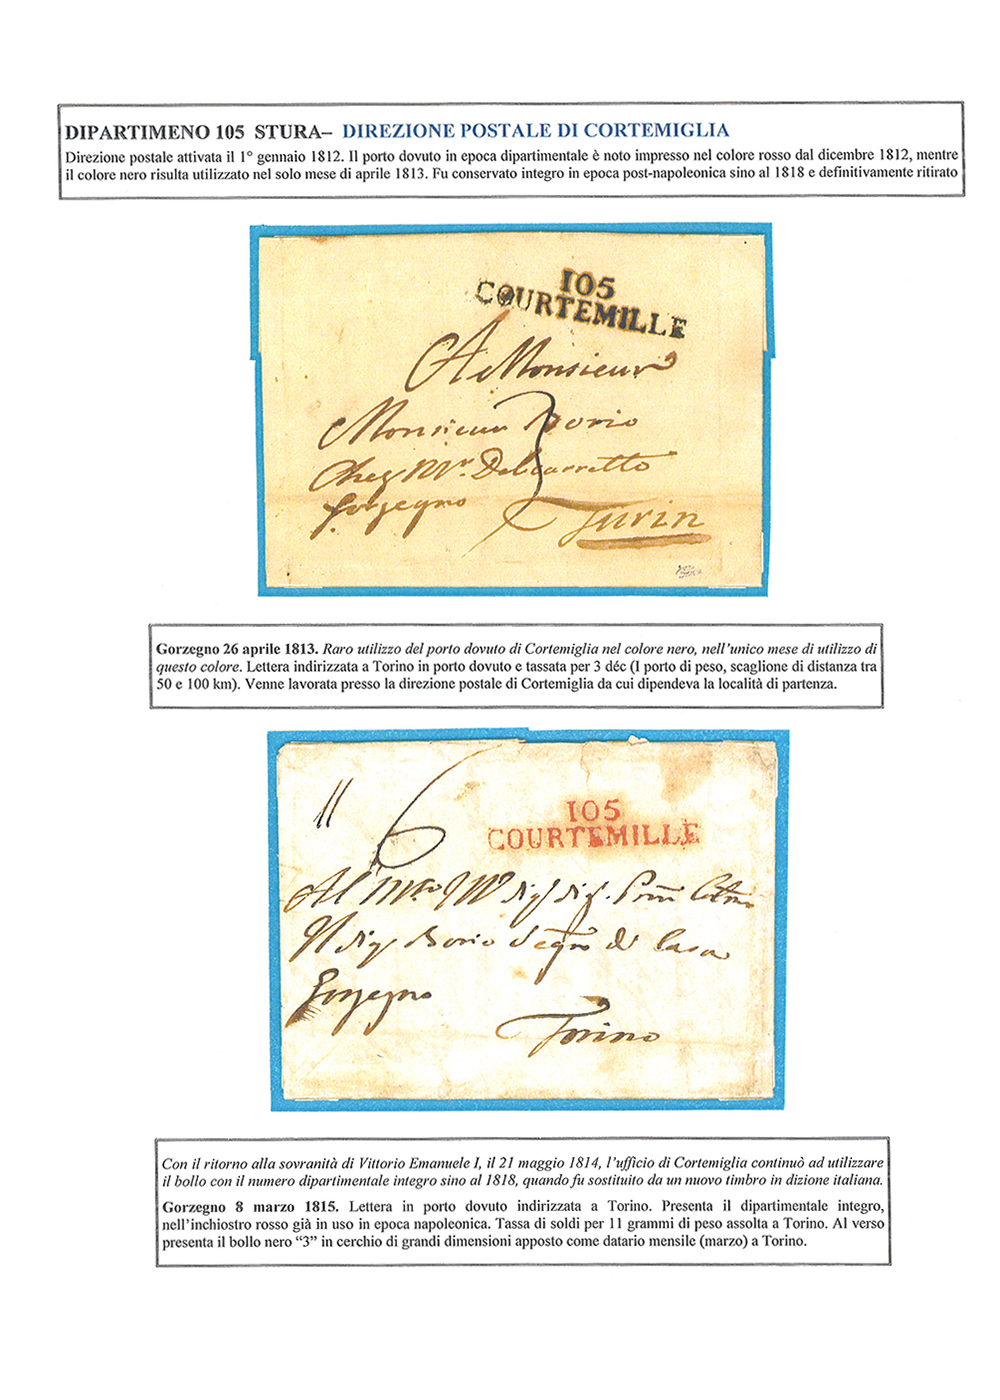 DIPARTIMENO 105 STURA– DIREZIONE POSTALE DI CORTEMIGLIA
Direzione postale attivata il 1° gennaio 1812. Il porto dovuto in epoca dipartimentale è noto impresso nel colore rosso dal dicembre 1812, mentre
il colore nero risulta utilizzato nel solo mese di aprile 1813. Fu conservato integro in epoca post-napoleonica sino al 1818 e definitivamente ritirato
105
COURTEMILLE
A Monsieur
Monsieur Borio
Chez Mr. Delcarretto
Gorzegno
3
Turin
Gorzegno 26 aprile 1813. Raro utilizzo del porto dovuto di Cortemiglia nel colore nero, nell'unico mese di utilizzo di
questo colore. Lettera indirizzata a Torino in porto dovuto e tassata per 3 déc (I porto di peso, scaglione di distanza tra
50 e 100 km). Venne lavorata presso la direzione postale di Cortemiglia da cui dipendeva la località di partenza.
11 6
105
COURTEMILLE
Al
Borio di Casa
Gorzegno
Torino
Con il ritorno alla sovranità di Vittorio Emanuele I, il 21 maggio 1814, l'ufficio di Cortemiglia continuò ad utilizzare
il bollo con il numero dipartimentale integro sino al 1818, quando fu sostituito da un nuovo timbro in dizione italiana.
Gorzegno 8 marzo 1815. Lettera in porto dovuto indirizzata a Torino. Presenta il dipartimentale integro,
nell'inchiostro rosso già in uso in epoca napoleonica. Tassa di soldi per 11 grammi di peso assolta a Torino. Al verso
presenta il bollo nero “3” in cerchio di grandi dimensioni apposto come datario mensile (marzo) a Torino.